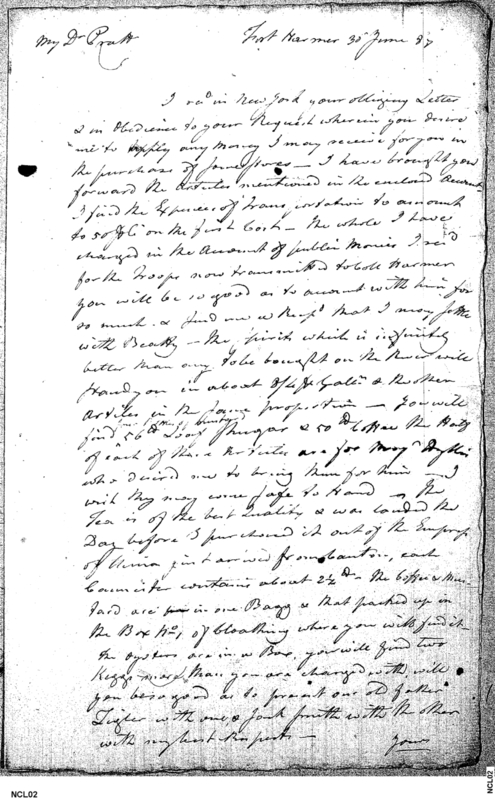 My Dr Pratt Fort Harmer 30 June 87
I recd in New York your obliging Letter
& in Obedience to your Request wherein you desire
me to apply any Money I may receive for you in
the purchase of some Stores — I have brought you
forward the Articles mentioned in the enclosed Account
I find the Expences of Transportation to amount
to 50 on the first Cost — The whole I have
charged in the Account of public Monies I recd
for the Troops now transmitted to Coll Harmer
you will be so good as to account with him for
so much & send me a Rect that I may settle
with Beatty — the spirits which is infinitely
better than any to be bought on the River will
stand you in about & the other
Articles in the same proportion — You will
find 56 lb Loaf Shugar & 50 lb Coffee the Half
of each of these Articles are for Majr Wyllis
who desired me to bring them for him — I
wish they may come safe to Hand — The
Tea is of the best Quality & was landed the
Day before I purchased it out of the Empress
of China just arrived from Canton, each
Cannister contains about 2½ lb — the Coffee & Mus-
tard are in one Bagg & that packed up in
the Box No. 1 of Cloathing where you will find it
the oysters are in a Box, you will find two
Keggs more than you are charged with, will
you be so good as to present our old father
with one, & Jack Smith with the other
with my best Respects —
your
NCL02
NCL02